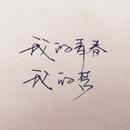 我的青春
我的梦